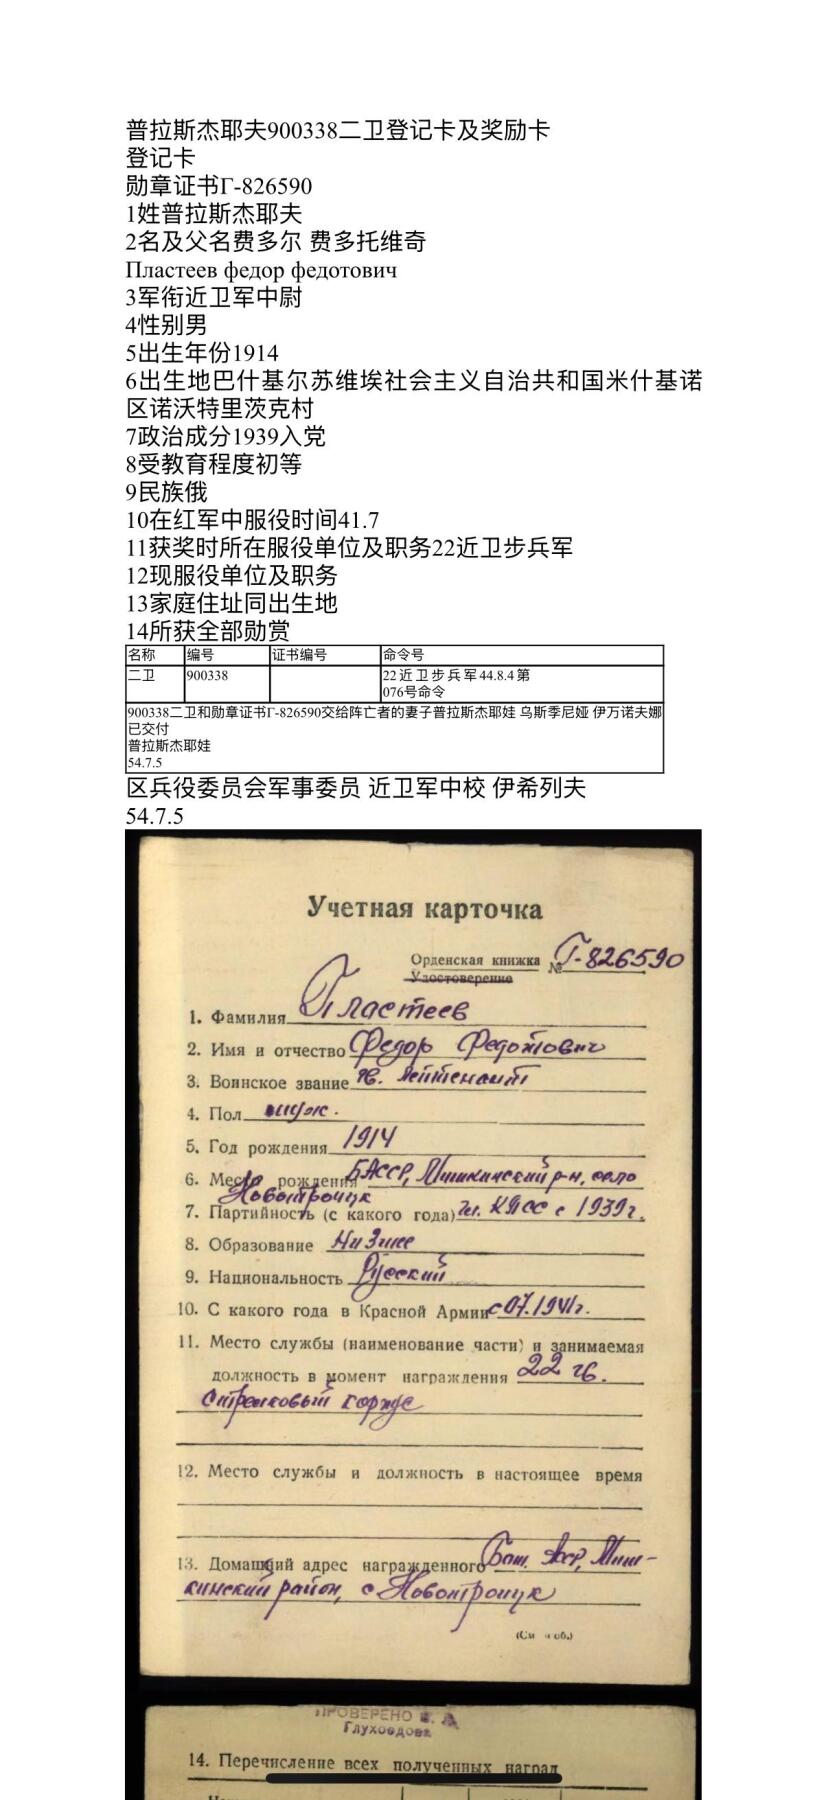 普拉斯杰耶夫900338二卫登记卡及奖励卡
登记卡
勋章证书Г-826590
1姓普拉斯杰耶夫
2名及父名费多尔 费多托维奇
Пластеев федор федотович
3军衔近卫军中尉
4性别男
5出生年份1914
6出生地巴什基尔苏维埃社会主义自治共和国米什基诺
区诺沃特里茨克村
7政治成分1939入党
8受教育程度初等
9民族俄
10在红军中服役时间41.7
11获奖时所在服役单位及职务22近卫步兵军
12现服役单位及职务
13家庭住址同出生地
14所获全部勋赏
名称 编号 证书编号 命令号
二卫 900338 22近卫步兵军44.8.4第
076号命令
900338二卫和勋章证书Г-826590交给阵亡者的妻子普拉斯杰耶娃 乌斯季尼娅 伊万诺夫娜
已交付
普拉斯杰耶娃
54.7.5
区兵役委员会军事委员 近卫军中校 伊希列夫
54.7.5
Учетная карточка
Орденская книжка № Г-826590
Удостоверение
1. Фамилия Пластеев
2. Имя и отчество Федор Федотович
3. Воинское звание гв. лейтенант
4. Пол муж.
5. Год рождения 1914
6. Место рождения БАССР, Мишкинский р-н, село
Новотроицк
7. Партийность (с какого года) чл. КПСС с 1939г.
8. Образование Низшее
9. Национальность Русский
10. С какого года в Красной Армии с 07.1941г.
11. Место службы (наименование части) и занимаемая
должность в момент награждения 22 гв.
стрелковый корпус
12. Место службы и должность в настоящее время
13. Домашний адрес награжденного Баш. АССР, Миш-
кинский район, с Новотроицк
(См н об.)
ПРОВЕРЕНО
Глуховдова
14. Перечисление всех полученных наград